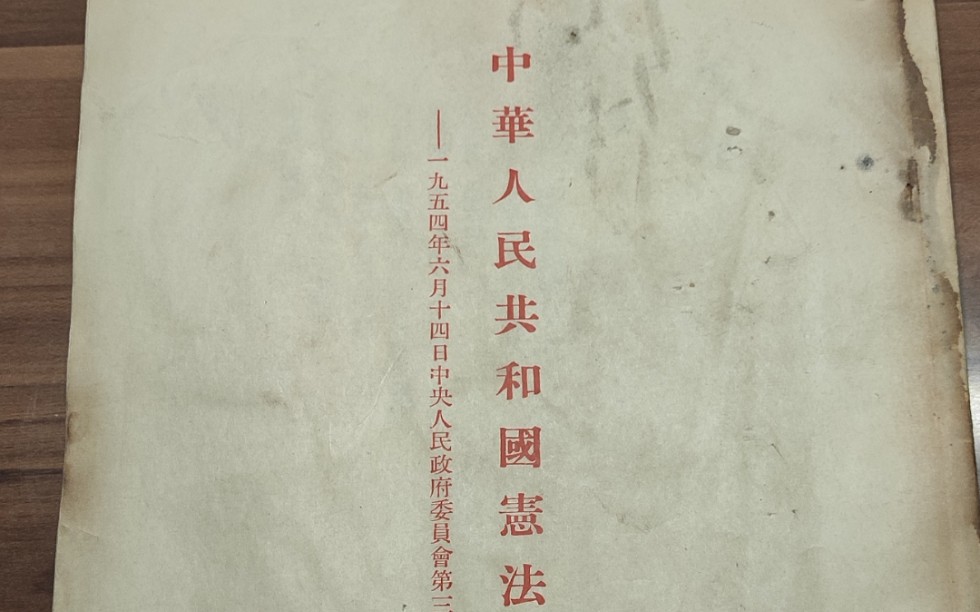 中華人民共和國憲法
——一九五四年六月十四日中央人民政府委員會第三